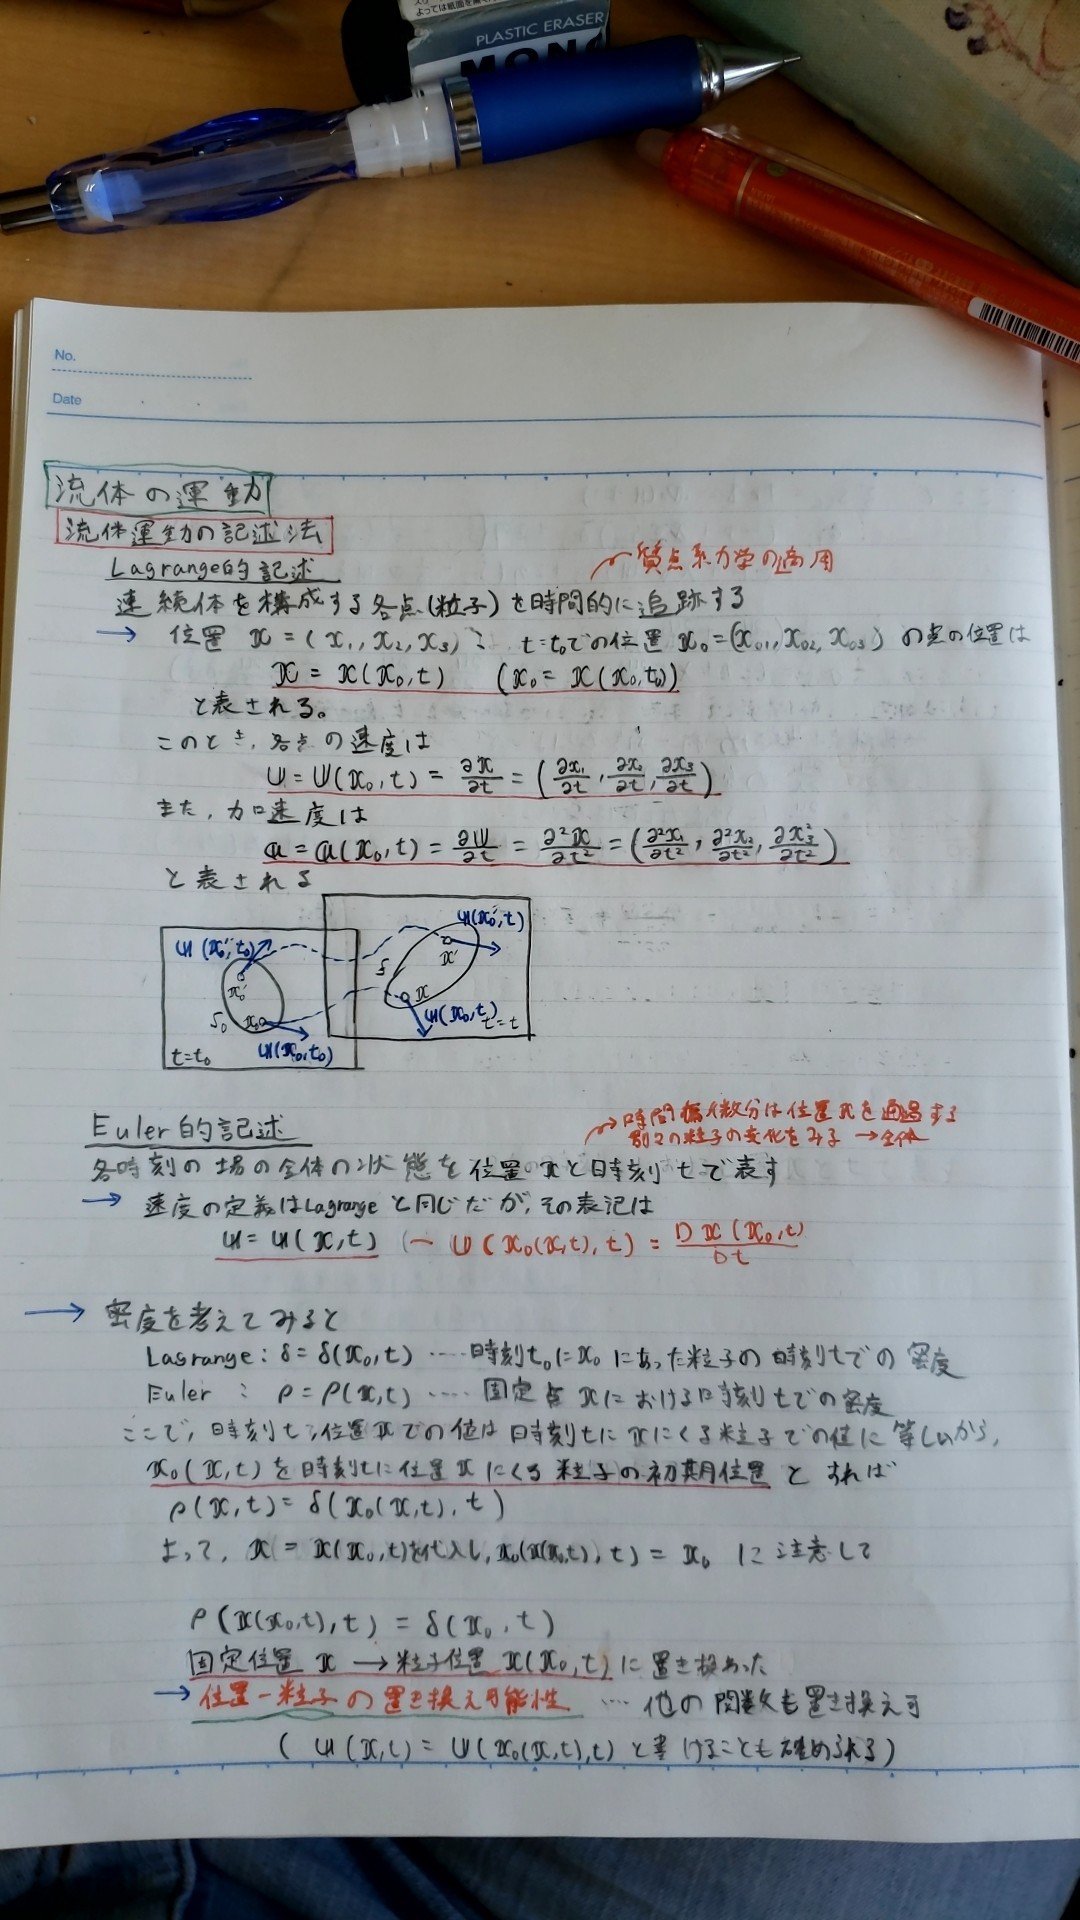 PLASTIC ERASER
MONO
No.
Date
流体の運動
流体運動の記述法
Lagrange的記述
質点系力学の適用
連続体を構成する各点(粒子)を時間的に追跡する
→ 位置 x = (x₁, x₂, x₃) : t=t₀での位置 x₀=(x₀₁, x₀₂, x₀₃) の点の位置は
x = x(x₀, t) (x₀ = x(x₀, t₀))
と表される。
このとき, 各点の速度は
U = U(x₀, t) = ∂x/∂t = (∂x₁/∂t, ∂x₂/∂t, ∂x₃/∂t)
また, 加速度は
a = a(x₀, t) = ∂U/∂t = ∂²x/∂t² = (∂²x₁/∂t², ∂²x₂/∂t², ∂x₃²/∂t²)
と表される
u(x₀', t₀)
x₀'
S₀
x₀
u(x₀, t₀)
t=t₀
u(x₀', t)
x'
S
x
u(x₀, t)
t=t
Euler的記述
→時間偏微分は位置xを通過する
別々の粒子の変化をみる →全体
各時刻の場の全体の状態を位置xと時刻tで表す
→ 速度の定義はLagrangeと同じだが, その表記は
u = u(x, t) (― U(x₀(x,t), t) = Dx(x₀,t)/Dt
→ 密度を考えてみると
Lagrange : δ = δ(x₀, t) ‥‥ 時刻t₀にx₀にあった粒子の時刻tでの密度
Euler : ρ = ρ(x, t) ‥‥ 固定点xにおける時刻tでの密度
ここで, 時刻t, 位置xでの値は時刻tにxにくる粒子での値に等しいから,
x₀(x, t)を時刻tに位置xにくる粒子の初期位置とすれば
ρ(x, t) = δ(x₀(x, t), t)
よって, x = x(x₀, t)を代入し, x₀(x(x₀,t), t) = x₀ に注意して
ρ(x(x₀,t), t) = δ(x₀, t)
固定位置 x → 粒子位置 x(x₀, t)に置き換わった
→ 位置―粒子の置き換え可能性 ‥‥ 他の関数も置き換え可
( u(x, t) = U(x₀(x, t), t) と書けることも確められる)